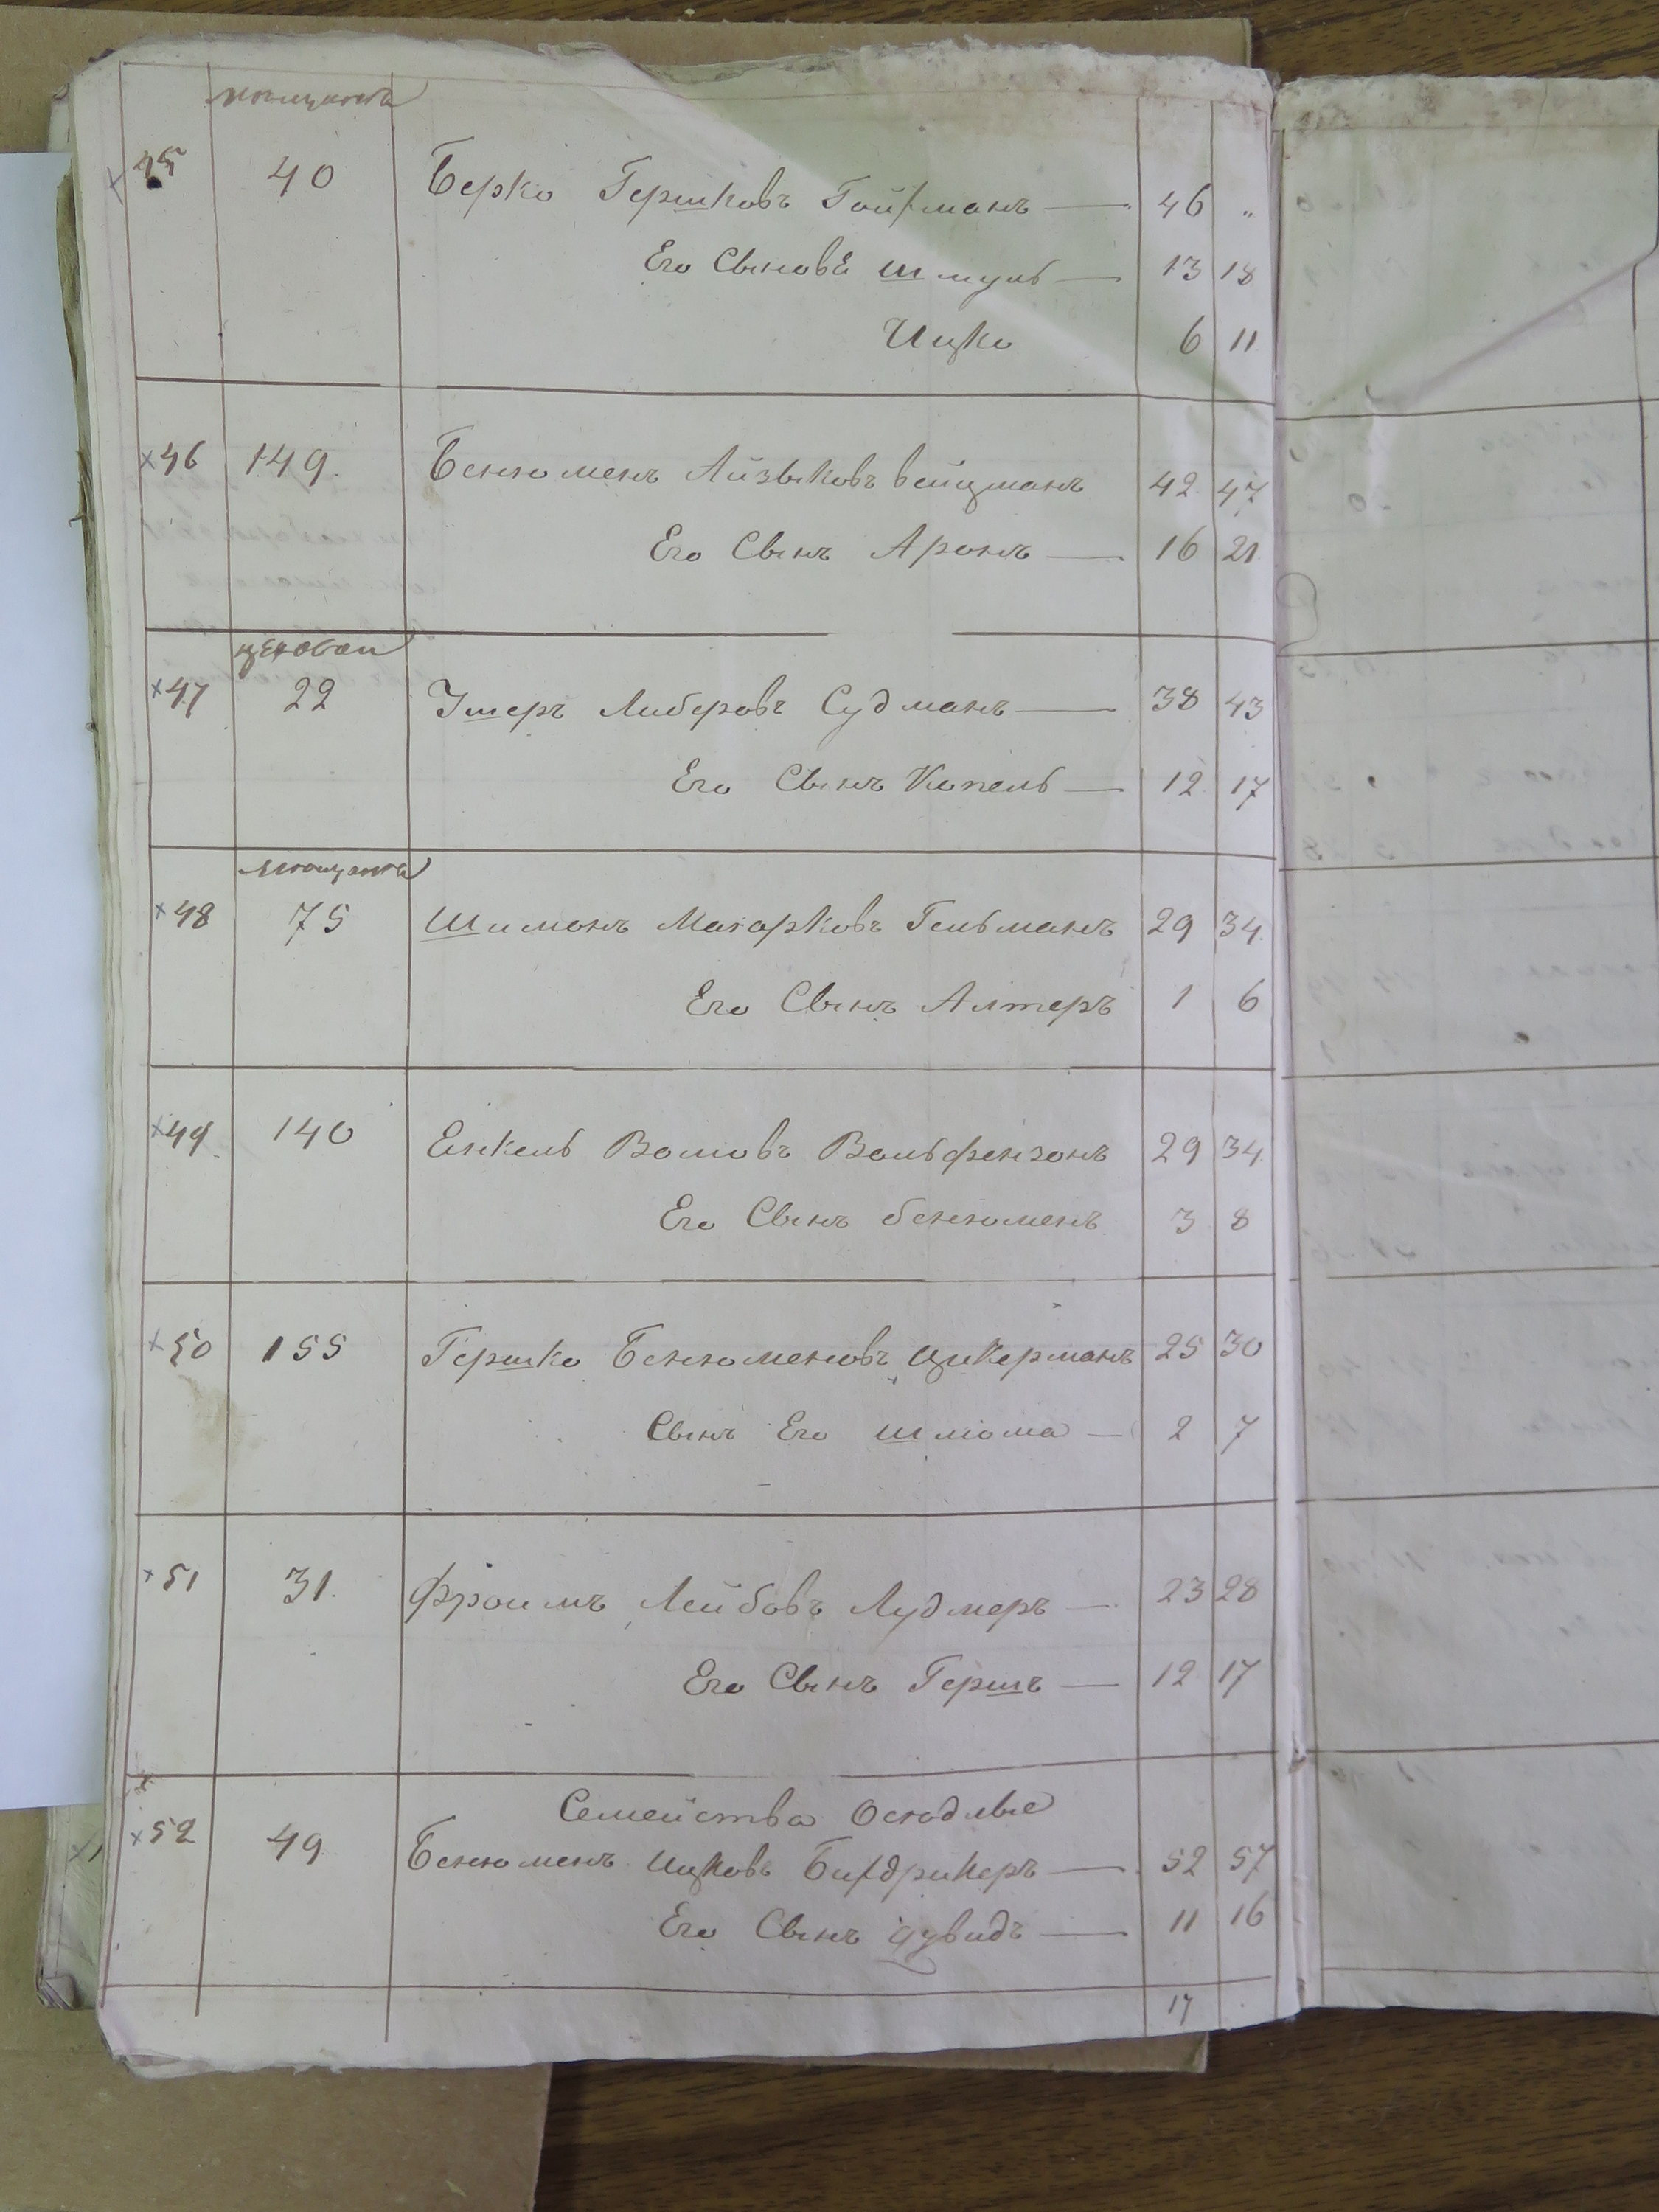 мещанска
×45 40 Берко Гершковъ Гойфманъ — 46 „
Его Сыновѣ Шмуль — 13 18
Ицко 6 11
×46 149. Бенюменъ Айзыковъ Вейцманъ 42 47
Его Сынъ Аронъ — 16 21
цеховой
×47 22 Умеръ Либеровъ Судманъ — 38 43
Его Сынъ Копель — 12 17
мещанска
×48 75 Шимонъ Магорковъ Гельманъ 29 34
Его Сынъ Алтеръ 1 6
×49 140 Енкель Волковъ Вольфензонъ 29 34
Его Сынъ бенюменъ 3 8
×50 155 Гершко Бенюменовъ Цикерманъ 25 30
Сынъ Его Шлиома — 2 7
×51 31. Фроимъ Лейбовъ Лудмеръ — 23 28
Его Сынъ Гершъ — 12 17
Семейства Оседлые
×52 49 Бенюменъ Ицковъ Бихдрикеръ — 52 57
Его Сынъ Дувидъ — 11 16
17